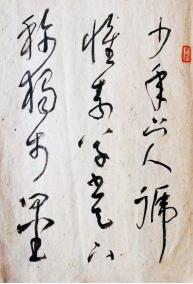 少年上人號
懷素草書天下
稱獨步墨